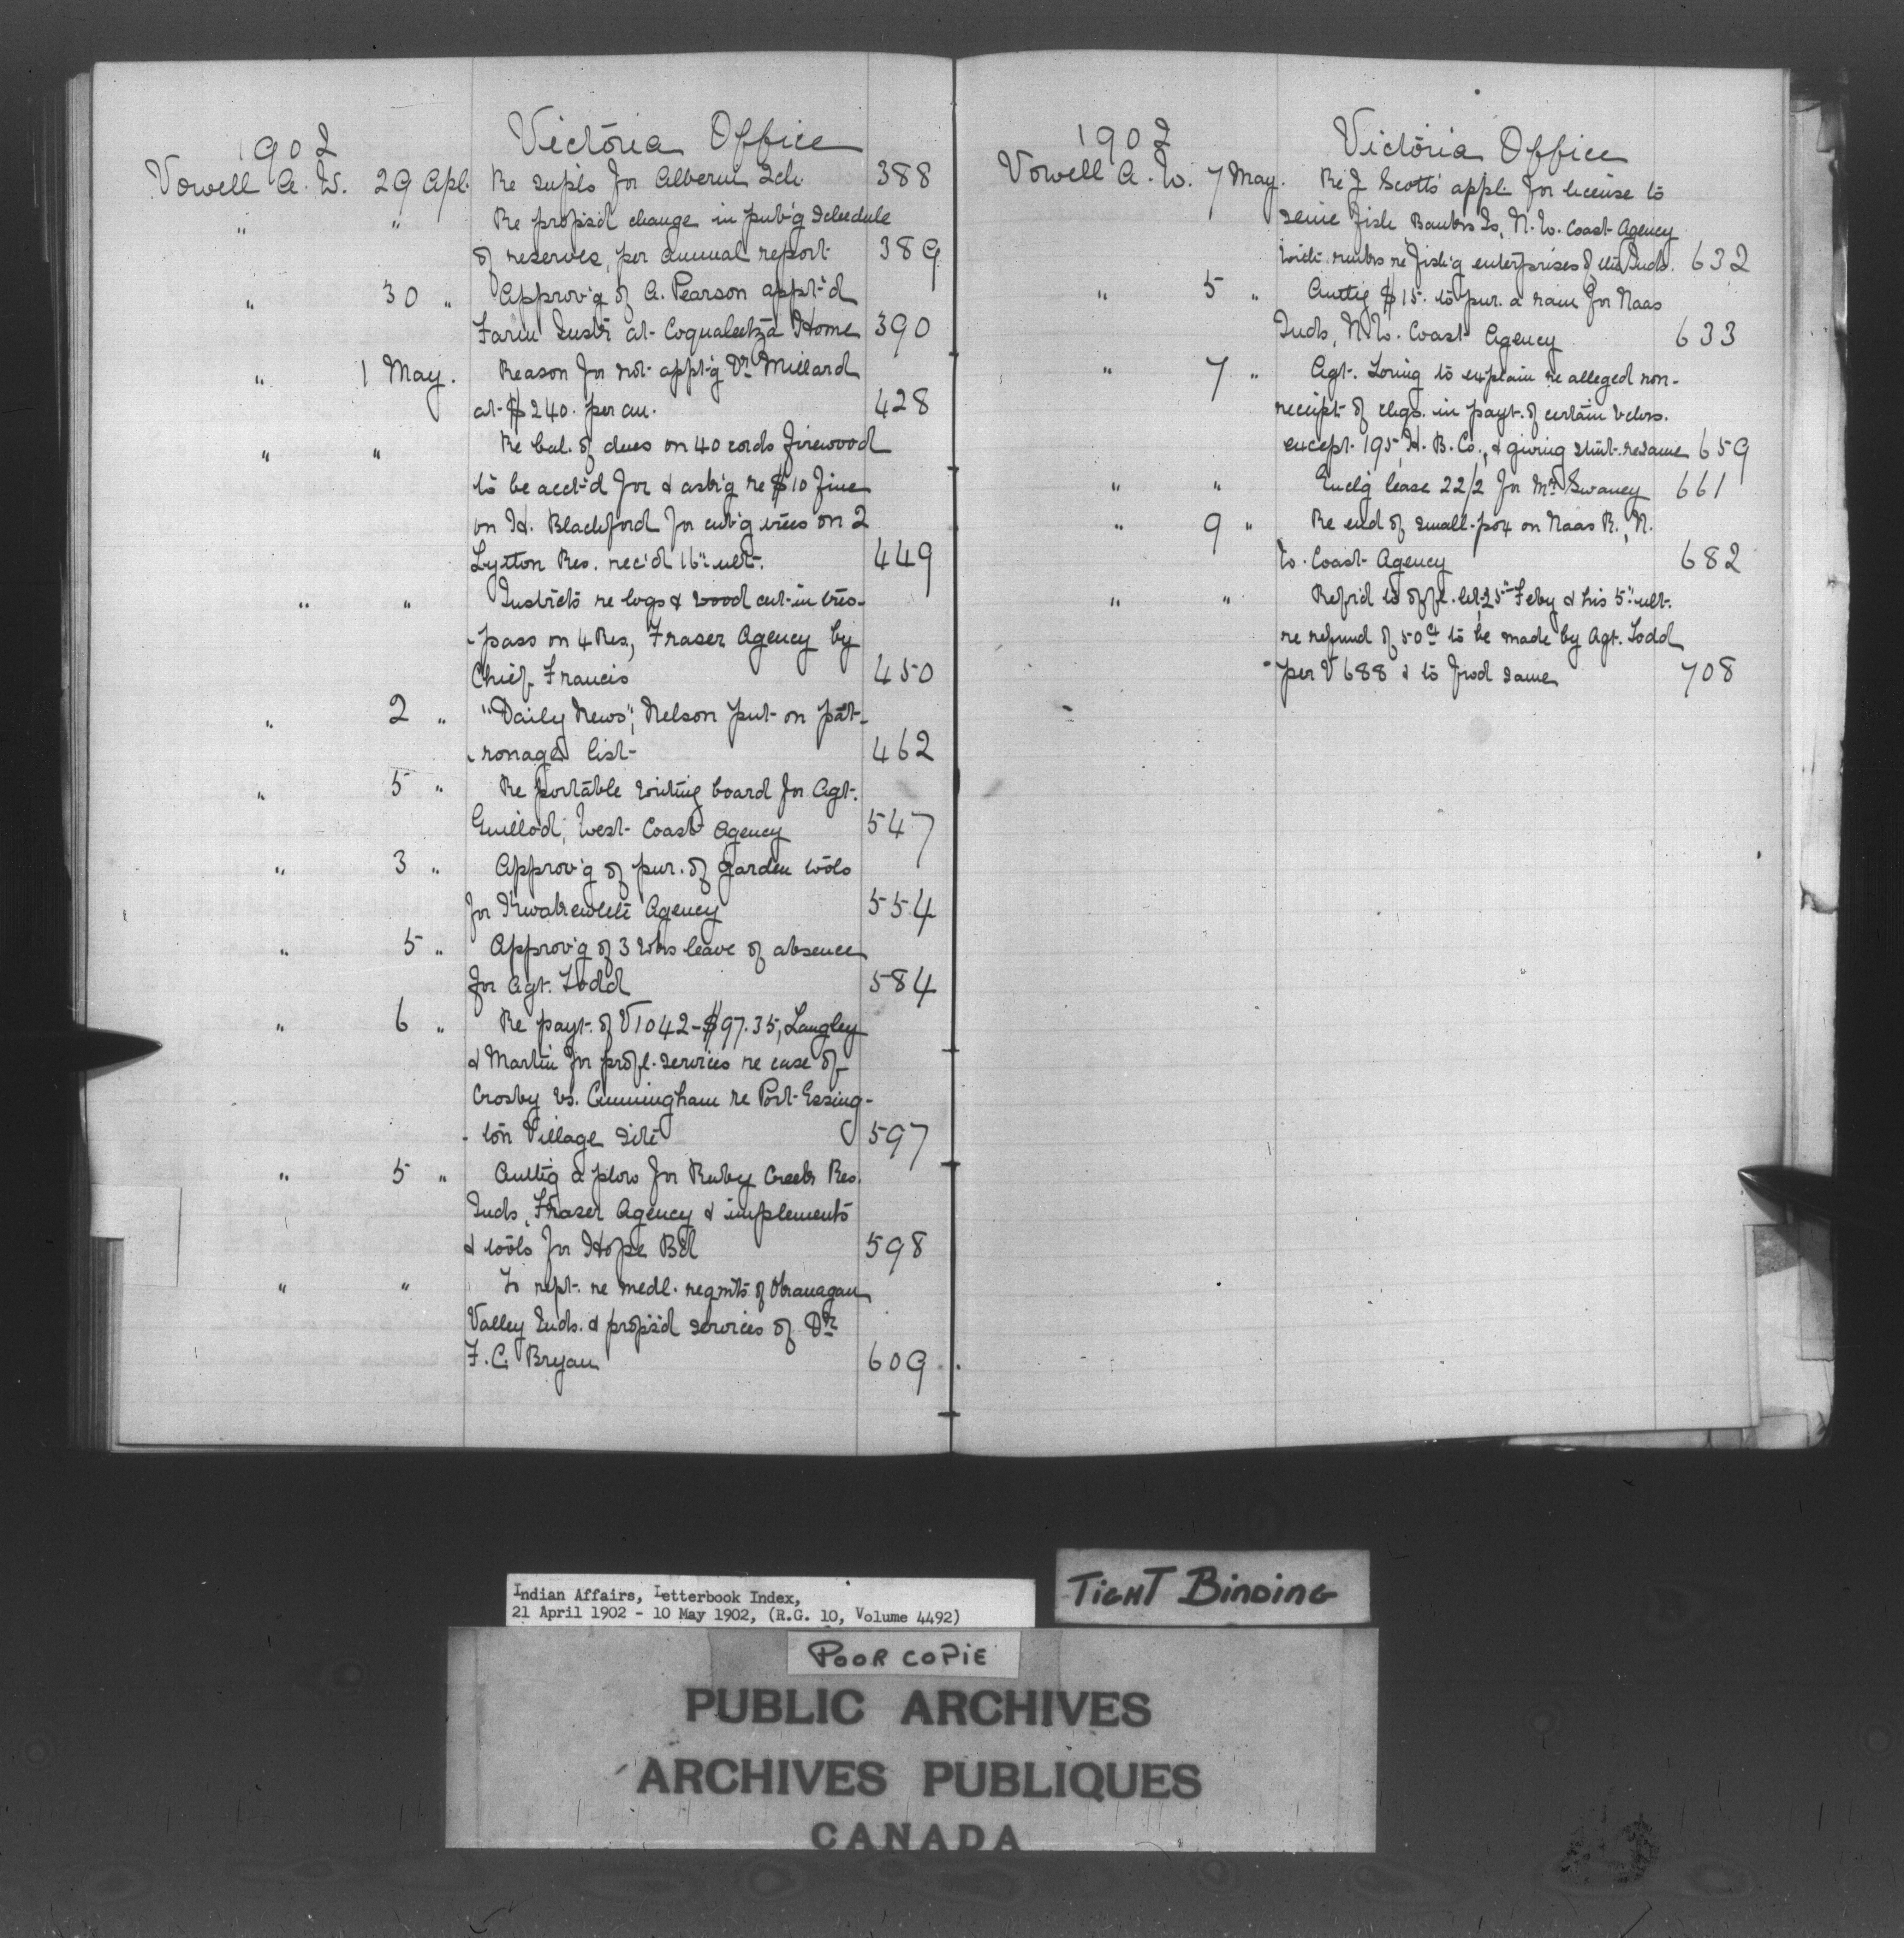 1902 Victoria Office
Vowell A. W. 29 Apl. Re supls for Alberni Sch. 388
" " Re propsd change in pub'g schedule
of reserves, per annual report 389
" 30 " Approv'g of A. Pearson appt'd
Farm Instr at Coqualeetza Home 390
" 1 May. Reason for not appt'g Dr. Millard
at $240. per an. 428
" " Re bal. of dues on 40 cords firewood
to be acct'd for & ask'g re $10 fine
on H. Blackford for cut'g trees on 2
Lytton Res. rec'd 16" ult. 449
" " Instrcts re logs & wood cut in tres-
-pass on 4 Res, Fraser Agency by
Chief Francis 450
" 2 " "Daily News", Nelson put on pat-
-ronage list 462
" 5 " Re portable writing board for Agt.
Guillod, West Coast Agency 547
" 3 " Approv'g of pur. of garden tools
for Kwakewlth Agency 554
" 5 " Approv'g of 3 wks leave of absence
for Agt. Todd 584
" 6 " Re payt. of V1042-$97.35, Langley
& Martin for profl. services re case of
Crosby vs. Cunningham re Port Essing-
-ton Village Site 597
" 5 " Authg a plow for Ruby Creek Res.
Inds, Fraser Agency & implements
& tools for Hope Bd 598
" " To rept. re medl. reqmts of Okanagan
Valley Inds. & propsd services of Dr.
F. C. Bryan 609
1902 Victoria Office
Vowell A. W. 7 May. Re J Scott's appl. for license to
seine fish Banks Is, N. W. Coast Agency
with remks re fish'g enterprises of the Inds. 632
" 5 " Authg $15. to pur. a ram for Naas
Inds, N. W. Coast Agency 633
" 7 " Agt. Loring to explain re alleged non-
receipt of chqs. in payt. of certain vchrs.
except 195, H. B. Co., & giving stmt. re same 659
" " Enclg lease 22/2 for Mr. Swaney 661
" 9 " Re end of small-pox on Naas R., N.
W. Coast Agency 682
" " Refrd to offl. let. 25" Feby & his 5" ult.
re refund of 50ct to be made by Agt. Todd
per V 688 & to frwd same 708
Indian Affairs, Letterbook Index,
21 April 1902 - 10 May 1902, (R.G. 10, Volume 4492)
TIGHT BINDING
POOR COPIE
PUBLIC ARCHIVES
ARCHIVES PUBLIQUES
CANADA